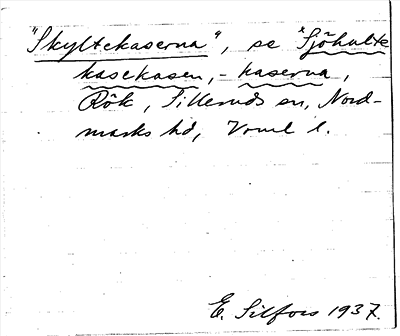 "Skyltekaserna", se *Sjöhulte
kasekasen, - kaserna,
Rök, Silleruds sn, Nord-
marks hd, Vrml l.
E. Silfors 1937.